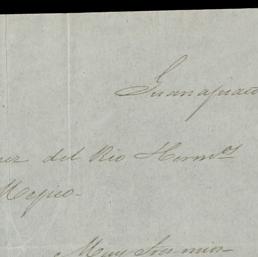 Guanajuato
del Rio Herm.s
Mejico.
Muy Sres mios